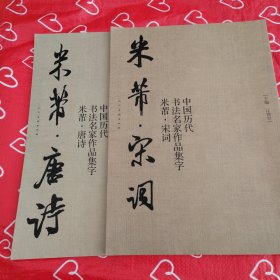 米芾·唐诗
中国历代
书法名家作品集字
米芾·唐诗
米芾·宋词
中国历代
书法名家作品集字
米芾·宋词